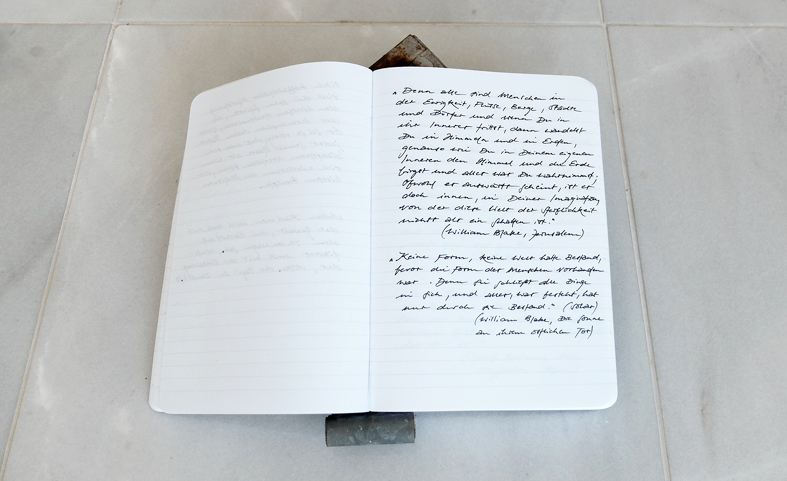 "Denn alle sind Menschen in
der Ewigkeit, Flüsse, Berge, Städte
und Dörfer und wenn Du in
ihr Inneres trittst, dann wandelst
Du in Himmeln und in Erden,
genauso wie Du in Deinem eigenen
Inneren den Himmel und die Erde
birgst und alles was Du wahrnimmst.
Obwohl es auswärts scheint, ist es
doch innen, in Deiner Imagination,
von der diese Welt der Sterblichkeit
nichts als ein Schatten ist."
(William Blake, Jerusalem)
"Keine Form, keine Welt hatte Bestand,
bevor die Form des Menschen vorhanden
war. Denn sie schliesst alle Dinge
in sich, und alles, was besteht, hat
nur durch sie Bestand." (Sohar)
(William Blake, Die Sonne
an ihrem östlichen Tor)